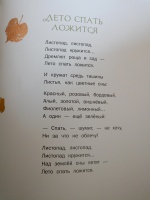 ЛЕТО СПАТЬ
ЛОЖИТСЯ
Листопад, листопад,
Листопад кружится...
Дремлет роща и сад —
Лето спать ложится.
И кружат средь тишины
Листья, как цветные сны:
Красный, розовый, бордовый,
Алый, золотой, вишнёвый,
Фиолетовый, лимонный...
А один — ещё зелёный:
— Спать, — шумит, — не хочу,
Ни за что не облечу!
Листопад, листопад,
Листопад кружится...
Над землёй сны летят —
Лето спать ложится.